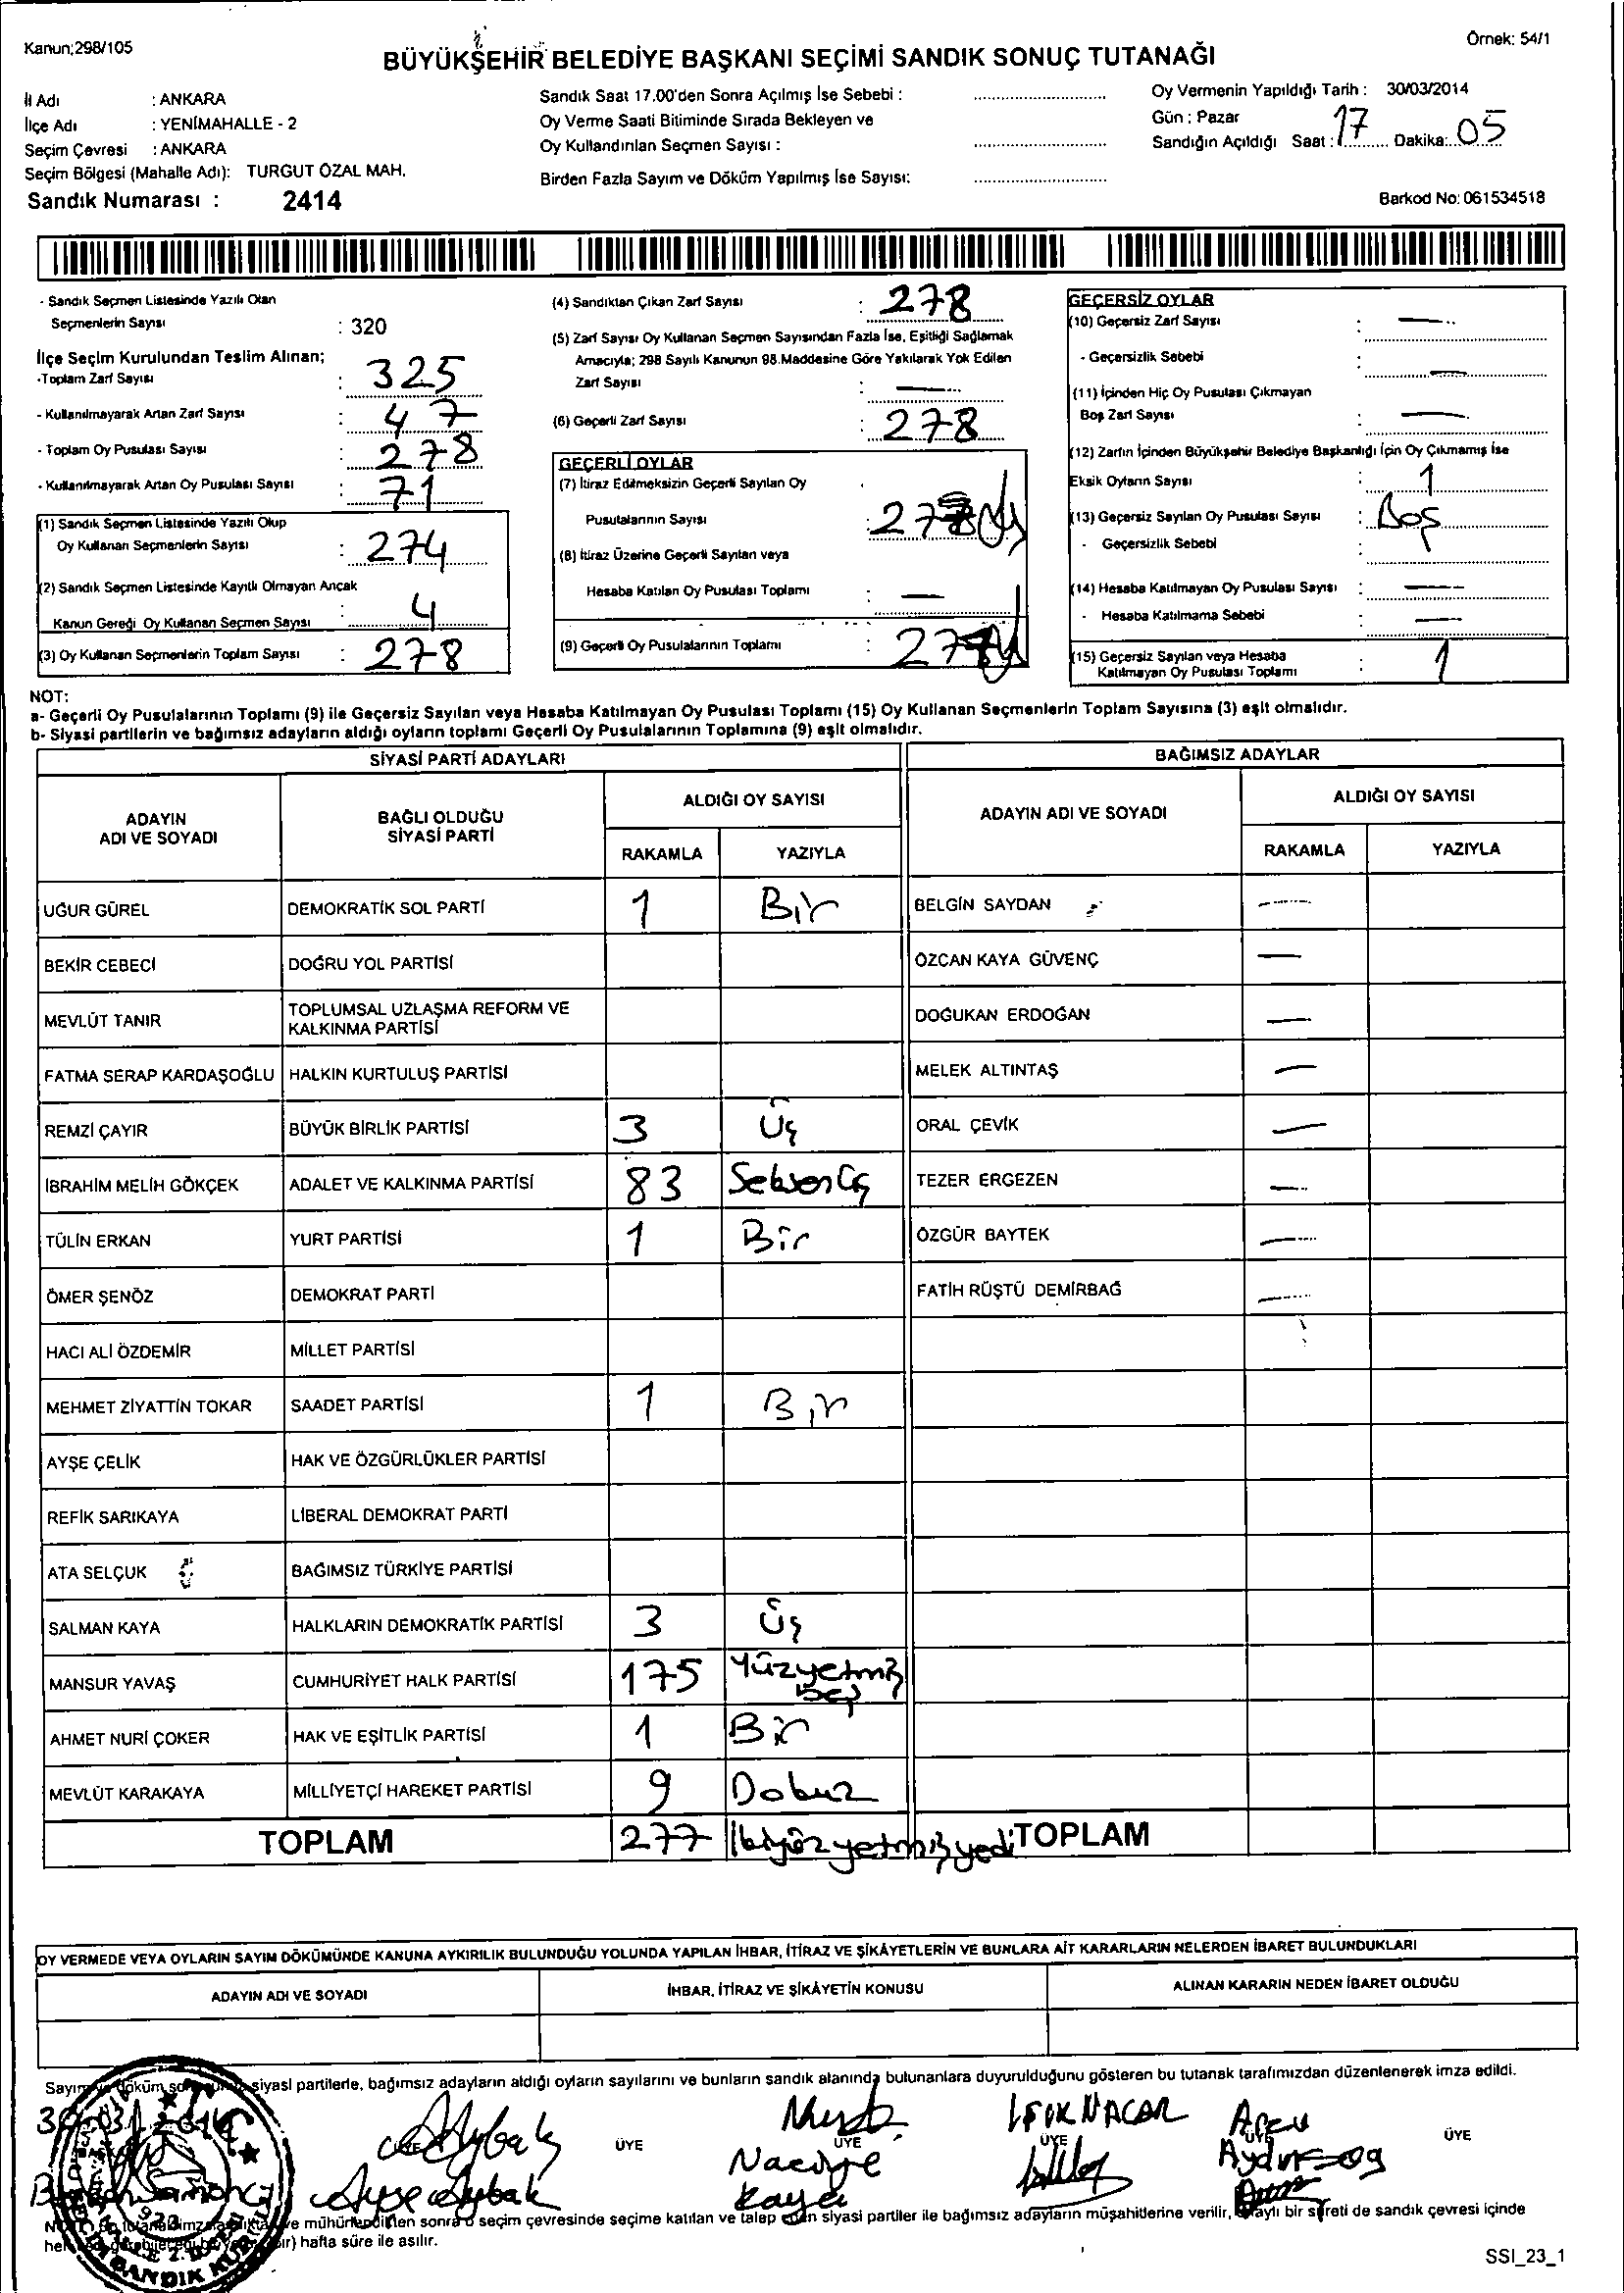 Kanun;298/105
Örnek: 54/1
BÜYÜKŞEHİR BELEDİYE BAŞKANI SEÇİMİ SANDIK SONUÇ TUTANAĞI
İl Adı : ANKARA
İlçe Adı : YENİMAHALLE - 2
Seçim Çevresi : ANKARA
Seçim Bölgesi (Mahalle Adı): TURGUT ÖZAL MAH.
Sandık Numarası : 2414
Sandık Saat 17.00'den Sonra Açılmış İse Sebebi :
Oy Verme Saati Bitiminde Sırada Bekleyen ve
Oy Kullandırılan Seçmen Sayısı :
Birden Fazla Sayım ve Döküm Yapılmış İse Sayısı:
Oy Vermenin Yapıldığı Tarih : 30/03/2014
Gün : Pazar
Sandığın Açıldığı Saat : 17 Dakika: 05
Barkod No: 061534518
- Sandık Seçmen Listesinde Yazılı Olan
Seçmenlerin Sayısı : 320
İlçe Seçim Kurulundan Teslim Alınan;
-Toplam Zarf Sayısı : 325
- Kullanılmayarak Artan Zarf Sayısı : 47
- Toplam Oy Pusulası Sayısı : 278
- Kullanılmayarak Artan Oy Pusulası Sayısı : 71
(1) Sandık Seçmen Listesinde Yazılı Olup
Oy Kullanan Seçmenlerin Sayısı : 274
(2) Sandık Seçmen Listesinde Kayıtlı Olmayan Ancak
Kanun Gereği Oy Kullanan Seçmen Sayısı : 4
(3) Oy Kullanan Seçmenlerin Toplam Sayısı : 278
(4) Sandıktan Çıkan Zarf Sayısı : 278
(5) Zarf Sayısı Oy Kullanan Seçmen Sayısından Fazla İse, Eşitliği Sağlamak
Amacıyla; 298 Sayılı Kanunun 98.Maddesine Göre Yakılarak Yok Edilen
Zarf Sayısı : —
(6) Geçerli Zarf Sayısı : 278
GEÇERLİ OYLAR
(7) İtiraz Edilmeksizin Geçerli Sayılan Oy
Pusulalarının Sayısı
(8) İtiraz Üzerine Geçerli Sayılan veya
Hesaba Katılan Oy Pusulası Toplamı : —
(9) Geçerli Oy Pusulalarının Toplamı :
GEÇERSİZ OYLAR
(10) Geçersiz Zarf Sayısı : —
- Geçersizlik Sebebi : —
(11) İçinden Hiç Oy Pusulası Çıkmayan
Boş Zarf Sayısı : —
(12) Zarfın İçinden Büyükşehir Belediye Başkanlığı İçin Oy Çıkmamış İse
Eksik Oyların Sayısı : 1
(13) Geçersiz Sayılan Oy Pusulası Sayısı : Boş
- Geçersizlik Sebebi :
(14) Hesaba Katılmayan Oy Pusulası Sayısı : —
- Hesaba Katılmama Sebebi : —
(15) Geçersiz Sayılan veya Hesaba
Katılmayan Oy Pusulası Toplamı : 1
NOT:
a- Geçerli Oy Pusulalarının Toplamı (9) ile Geçersiz Sayılan veya Hesaba Katılmayan Oy Pusulası Toplamı (15) Oy Kullanan Seçmenlerin Toplam Sayısına (3) eşit olmalıdır.
b- Siyasi partilerin ve bağımsız adayların aldığı oyların toplamı Geçerli Oy Pusulalarının Toplamına (9) eşit olmalıdır.
SİYASİ PARTİ ADAYLARI
ADAYIN ADI VE SOYADI
BAĞLI OLDUĞU SİYASİ PARTİ
ALDIĞI OY SAYISI
RAKAMLA YAZIYLA
UĞUR GÜREL DEMOKRATİK SOL PARTİ 1 Bir
BEKİR CEBECİ DOĞRU YOL PARTİSİ
MEVLÜT TANIR TOPLUMSAL UZLAŞMA REFORM VE KALKINMA PARTİSİ
FATMA SERAP KARDAŞOĞLU HALKIN KURTULUŞ PARTİSİ
REMZİ ÇAYIR BÜYÜK BİRLİK PARTİSİ 3 Üç
İBRAHİM MELİH GÖKÇEK ADALET VE KALKINMA PARTİSİ 83 Seksen üç
TÜLİN ERKAN YURT PARTİSİ 1 Bir
ÖMER ŞENÖZ DEMOKRAT PARTİ
HACI ALİ ÖZDEMİR MİLLET PARTİSİ
MEHMET ZİYATTİN TOKAR SAADET PARTİSİ 1 Bir
AYŞE ÇELİK HAK VE ÖZGÜRLÜKLER PARTİSİ
REFİK SARIKAYA LİBERAL DEMOKRAT PARTİ
ATA SELÇUK BAĞIMSIZ TÜRKİYE PARTİSİ
SALMAN KAYA HALKLARIN DEMOKRATİK PARTİSİ 3 Üç
MANSUR YAVAŞ CUMHURİYET HALK PARTİSİ 175 Yüzyetmiş beş
AHMET NURİ ÇOKER HAK VE EŞİTLİK PARTİSİ 1 Bir
MEVLÜT KARAKAYA MİLLİYETÇİ HAREKET PARTİSİ 9 Dokuz
TOPLAM 277 İkiyüz yetmiş yedi
BAĞIMSIZ ADAYLAR
ADAYIN ADI VE SOYADI
ALDIĞI OY SAYISI
RAKAMLA YAZIYLA
BELGİN SAYDAN —
ÖZCAN KAYA GÜVENÇ —
DOĞUKAN ERDOĞAN —
MELEK ALTINTAŞ —
ORAL ÇEVİK —
TEZER ERGEZEN —
ÖZGÜR BAYTEK —
FATİH RÜŞTÜ DEMİRBAĞ —
TOPLAM
OY VERMEDE VEYA OYLARIN SAYIM DÖKÜMÜNDE KANUNA AYKIRILIK BULUNDUĞU YOLUNDA YAPILAN İHBAR, İTİRAZ VE ŞİKÂYETLERİN VE BUNLARA AİT KARARLARIN NELERDEN İBARET BULUNDUKLARI
ADAYIN ADI VE SOYADI
İHBAR, İTİRAZ VE ŞİKÂYETİN KONUSU
ALINAN KARARIN NEDEN İBARET OLDUĞU
siyasi partilerle, bağımsız adayların aldığı oyların sayılarını ve bunların sandık alanında bulunanlara duyurulduğunu gösteren bu tutanak tarafımızdan düzenlenerek imza edildi.
ÜYE ÜYE ÜYE ÜYE ÜYE ÜYE
IŞIK NACAR
Naciye
Kaya
Ayşe Aybak
ve mühürlendikten sonra o seçim çevresinde seçime katılan ve talep eden siyasi partiler ile bağımsız adayların müşahitlerine verilir, onaylı bir sureti de sandık çevresi içinde
hafta süre ile asılır.
SSI_23_1